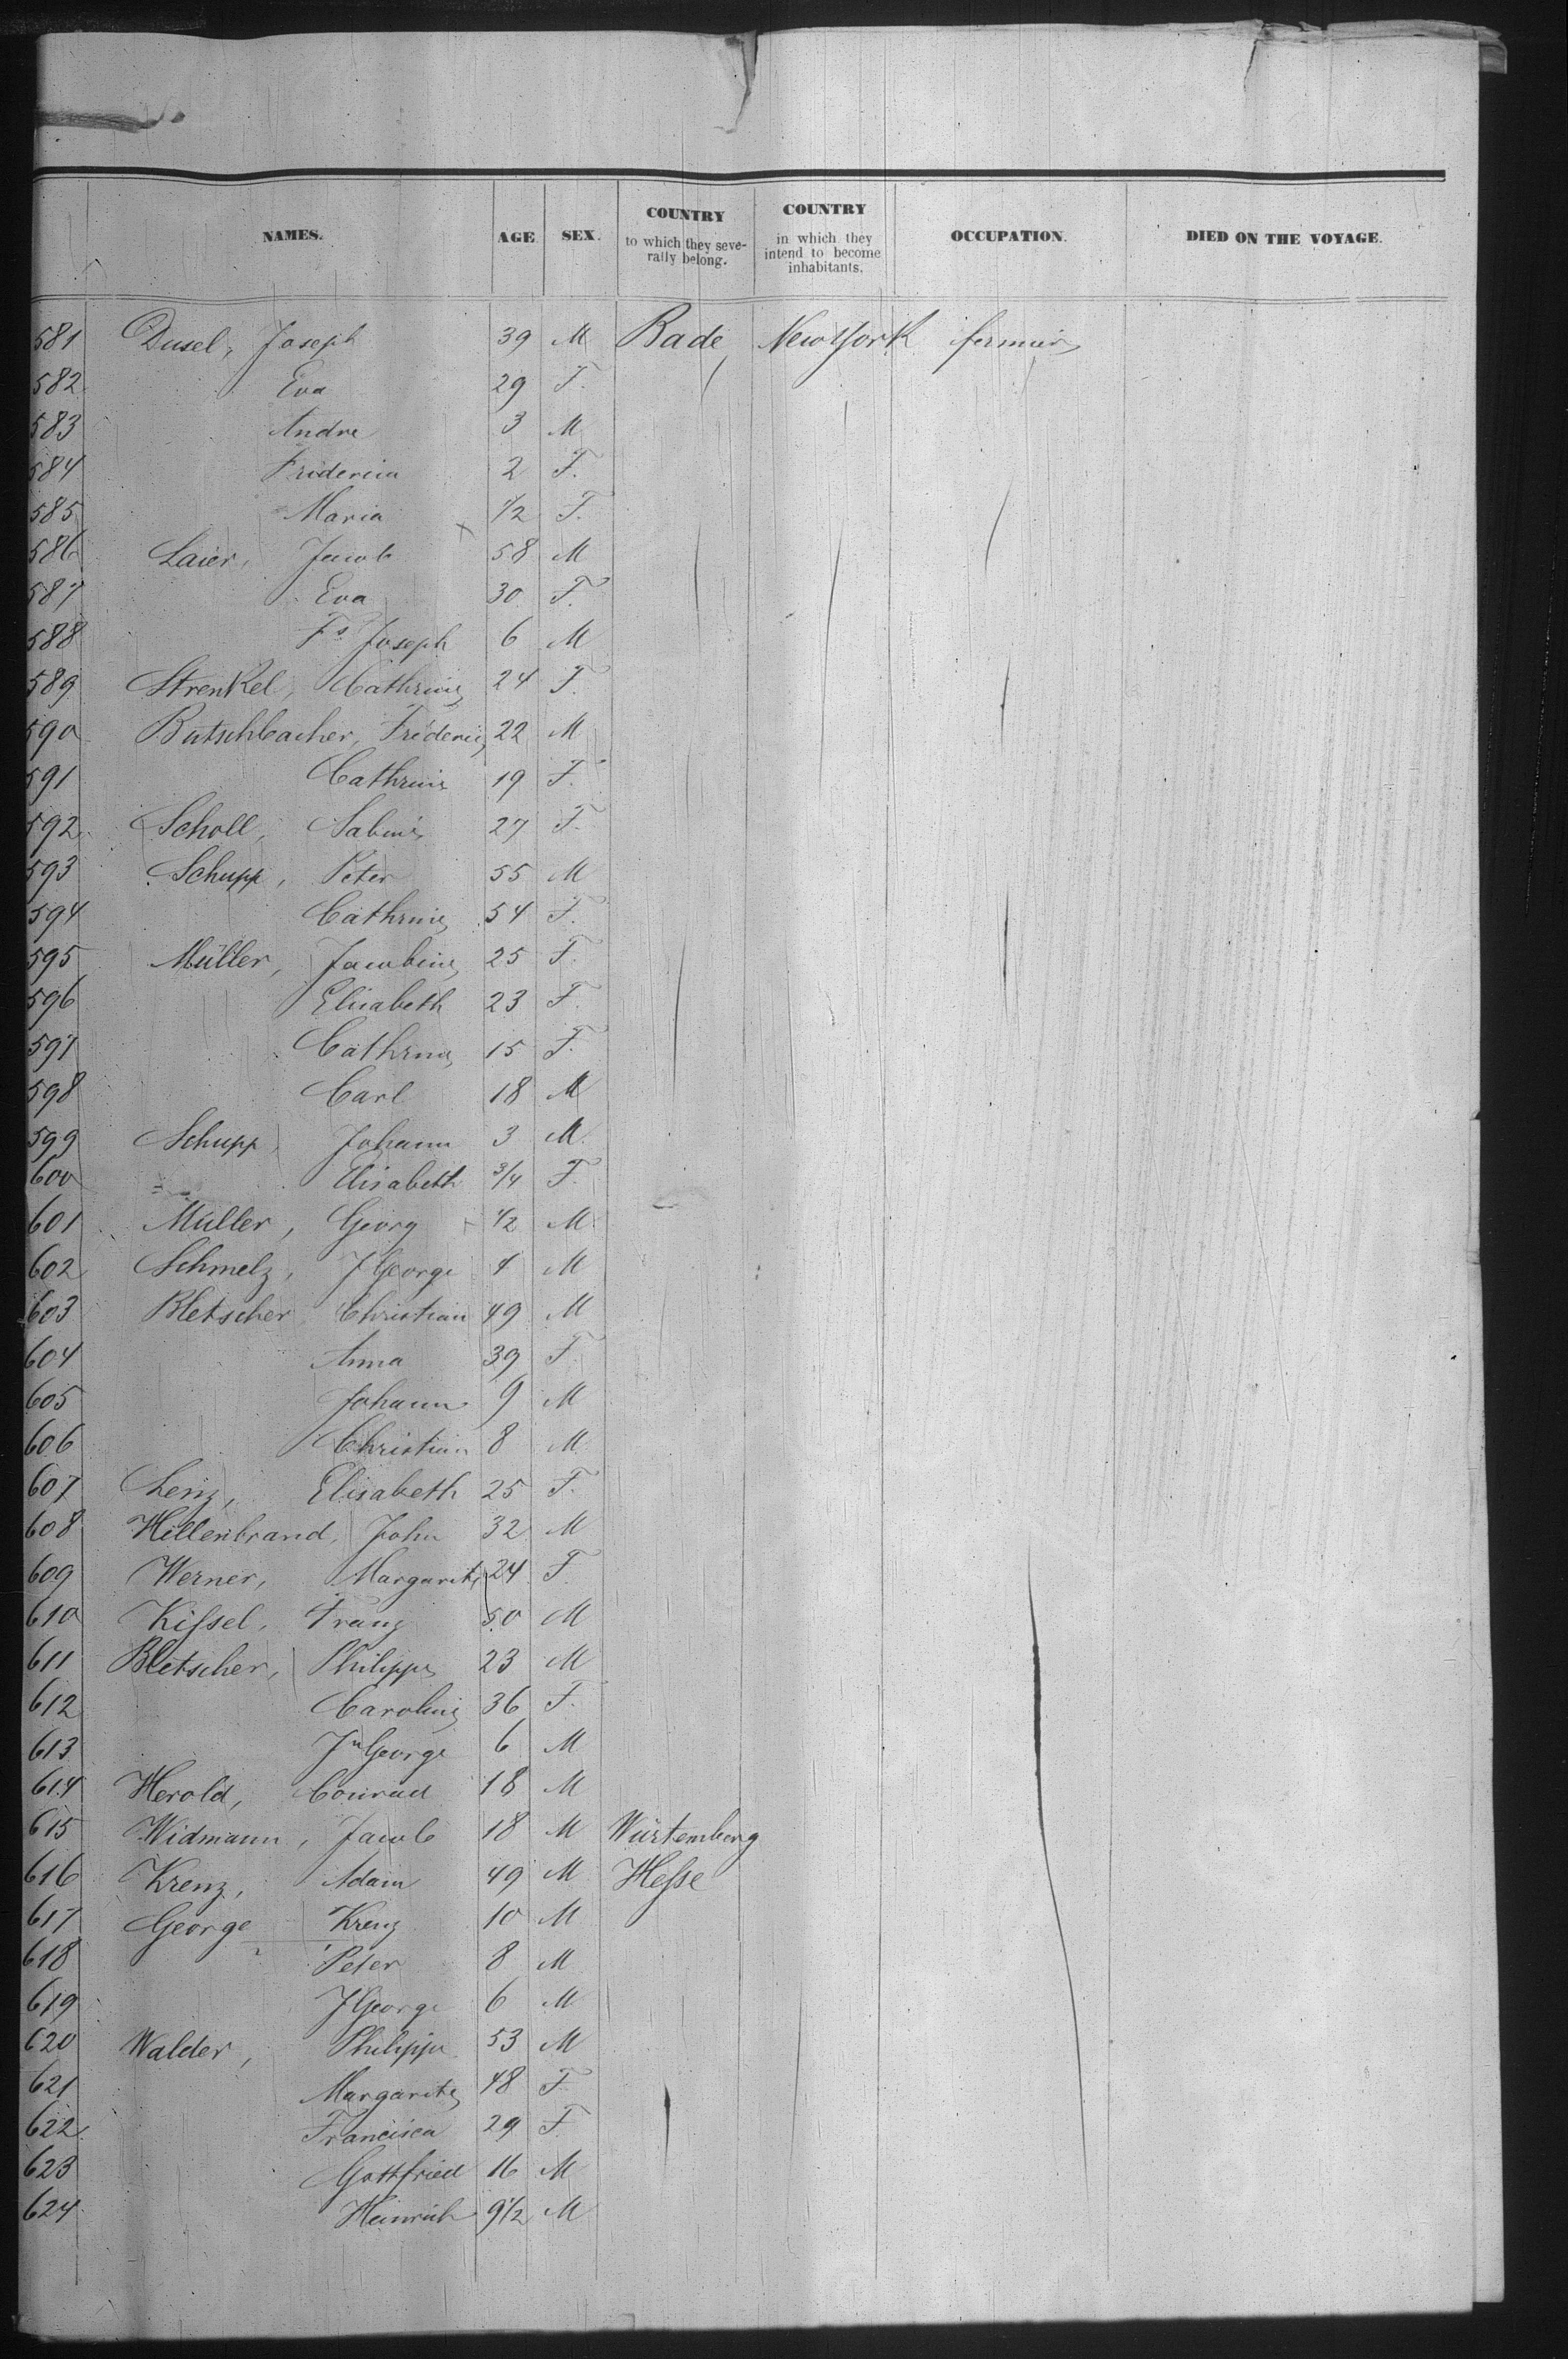 NAMES. AGE SEX. COUNTRY to which they severally belong. COUNTRY in which they intend to become inhabitants. OCCUPATION. DIED ON THE VOYAGE.
581 Dusel, Joseph 39 M Bade New York fermier
582 Eva 29 F.
583 Andre 3 M
584 Fridericia 2 F.
585 Maria 1/2 F.
586 Laier, Jacob 58 M
587 Eva 30 F.
588 Fs Joseph 6 M
589 Strenkel, Cathrine 24 F.
590 Butschbacher, Frideric 22 M
591 Cathrine 19 F.
592 Scholl, Sabine 27 F.
593 Schupp, Peter 55 M
594 Cathrine 54 F.
595 Müller, Jacobine 25 F.
596 Elisabeth 23 F.
597 Cathrine 15 F.
598 Carl 18 M
599 Schupp, Johann 3 M.
600 Elisabeth 3/4 F.
601 Müller, Georg 1/2 M.
602 Schmelz, J George 4 M
603 Bletscher Christian 49 M
604 Anna 39 F
605 Johann 9 M
606 Christian 8 M
607 Lenz, Elisabeth 25 F.
608 Hillenbrand, John 32 M
609 Werner, Margarite 24 F
610 Kissel, Franz 50 M
611 Bletscher, Philippe 23 M
612 Caroline 36 F.
613 Jn George 6 M
614 Herold, Conrad 18 M
615 Widmann, Jacob 18 M Würtemberg
616 Krenz, Adam 49 M Hesse
617 George Krenz 10 M
618 Peter 8 M
619 J George 6 M
620 Walder, Philippe 53 M
621 Margarite 48 F
622 Francisca 29 F
623 Gottfried 16 M
624 Heinrich 9 1/2 M